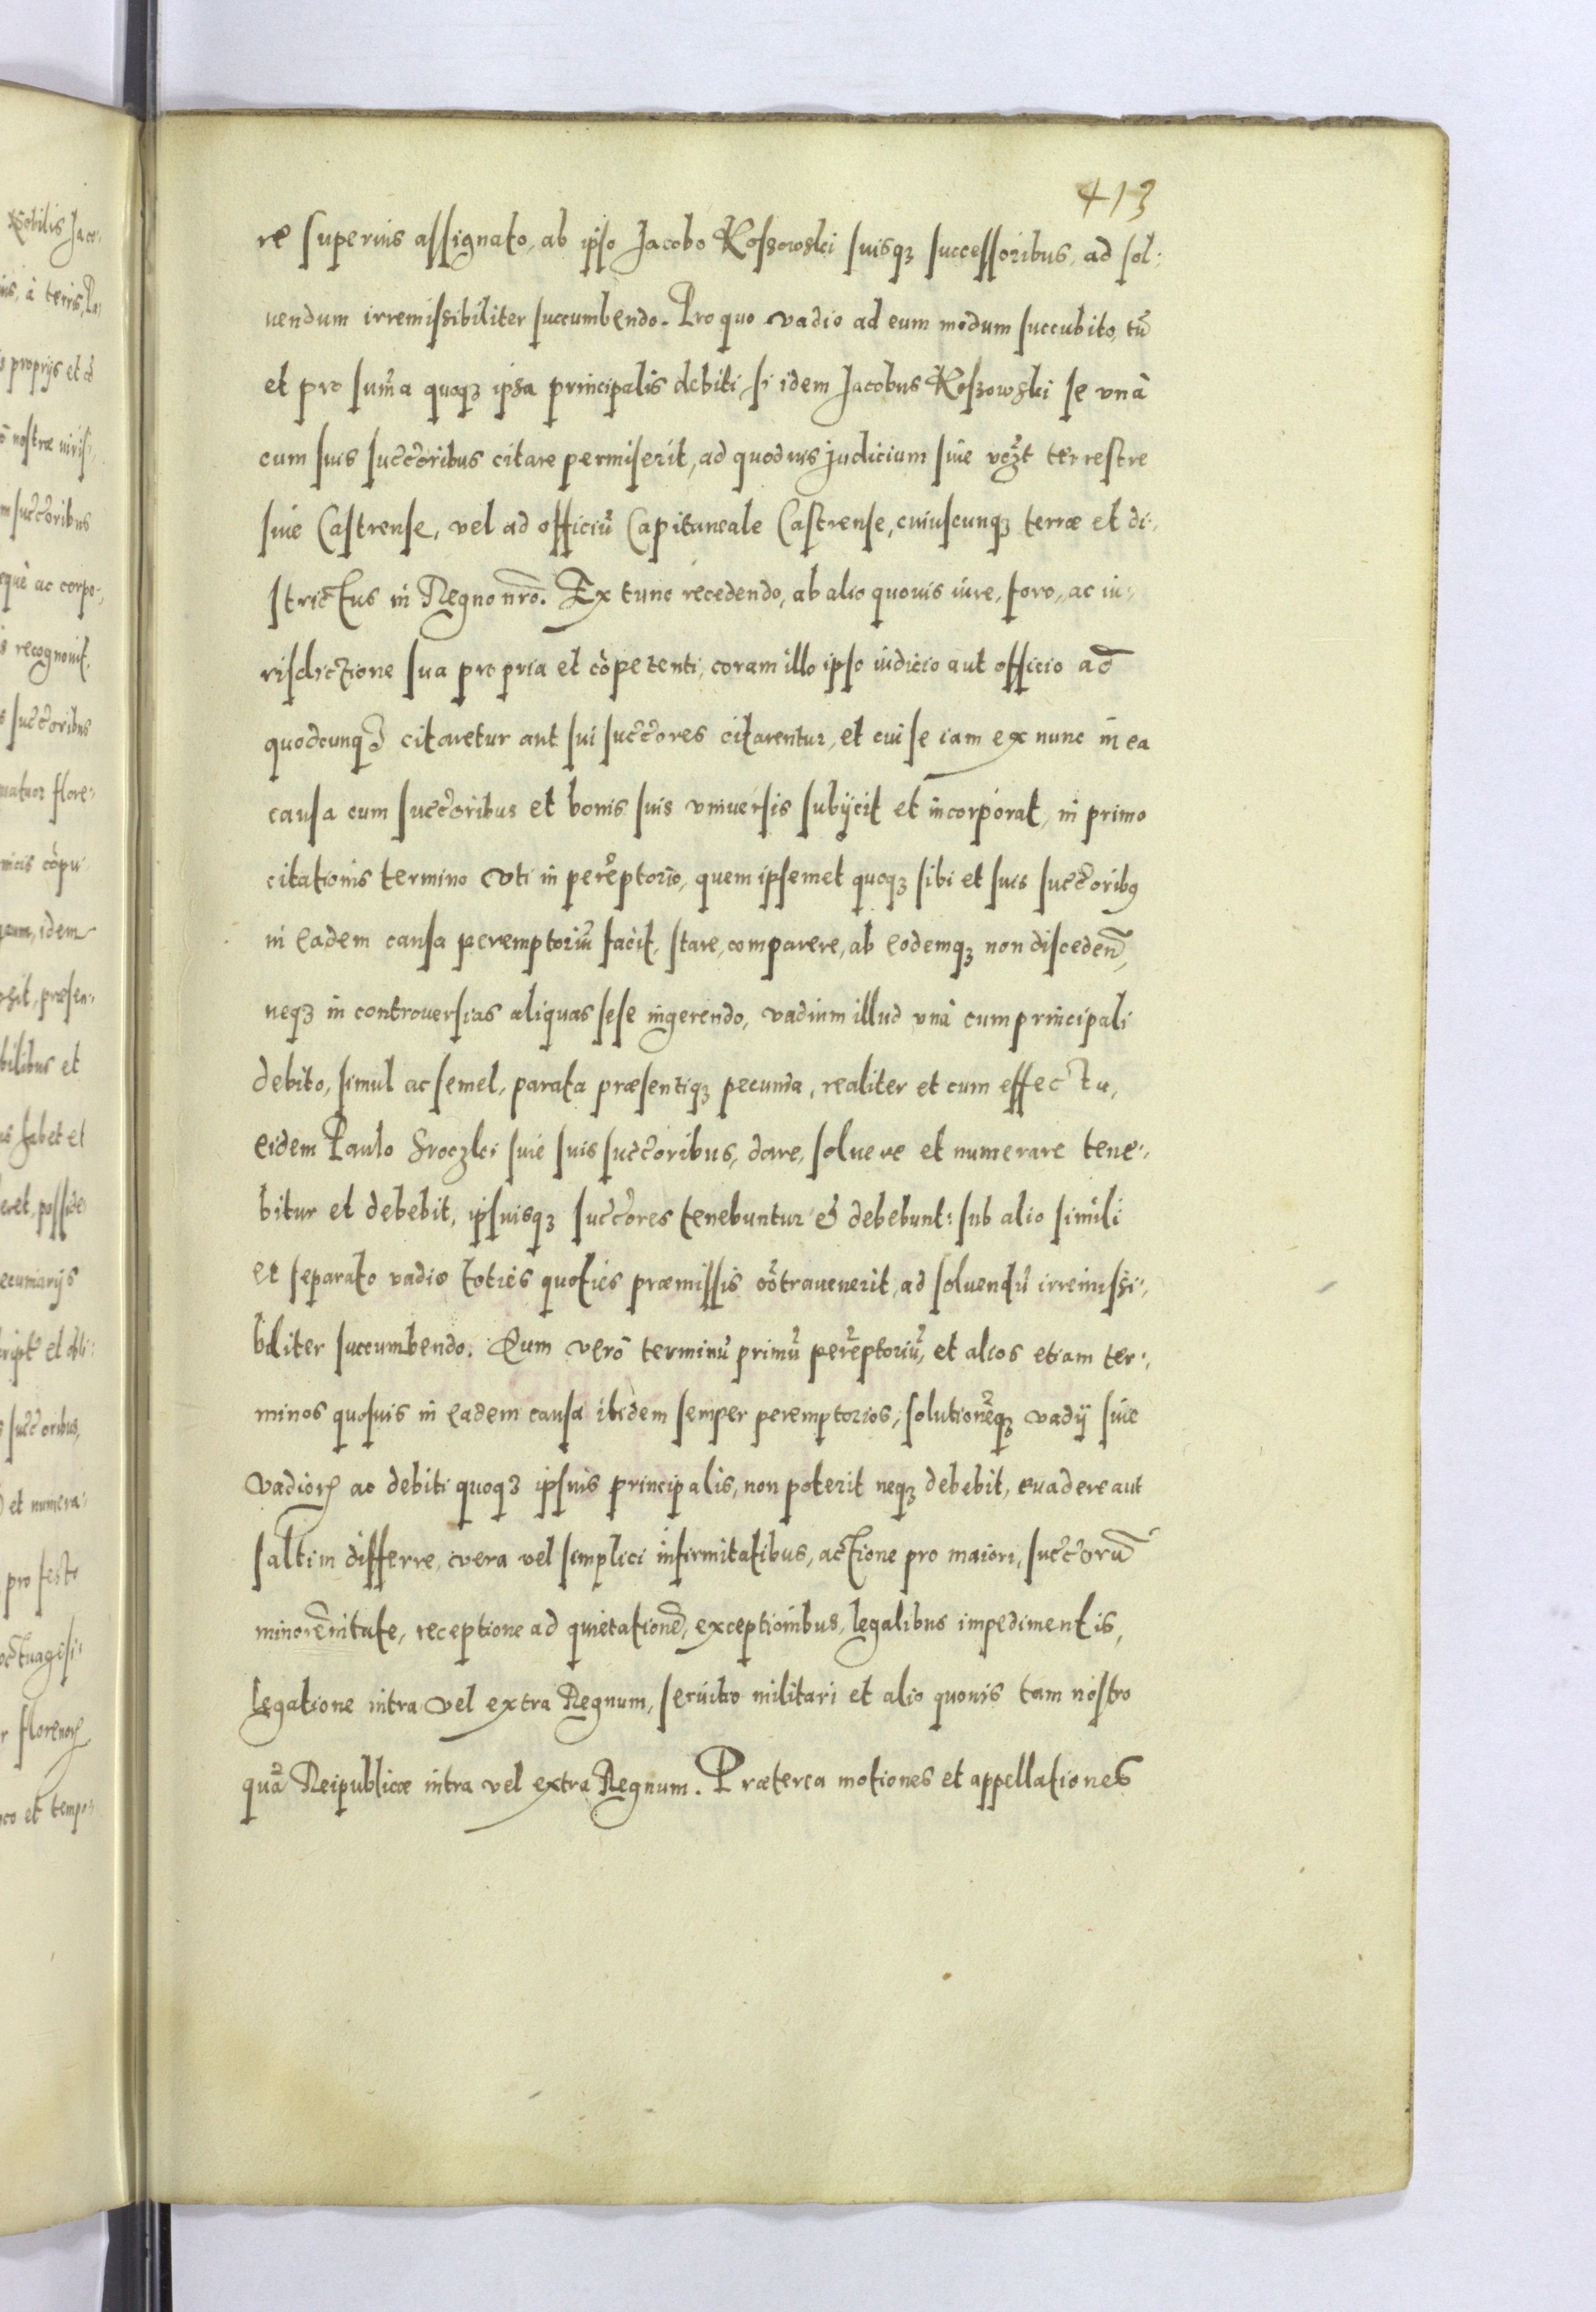 413
re superius assignato, ab ipso Jacobo Kossowski suisqꝫ successoribus, ad sol:
uendum irremissibiliter succumbendo. Pro quo vadio ad eum modum succubito, tū
et pro sum̄a quoqꝫ ipsa principalis debiti, si idem Jacobus Koszowski se vnà
cum suis succ̄oribus citare permiserit, ad quoduis judicium siue vꝫt terrestre
siue Castrense, vel ad officiū Capitaneale Castrense, cuiuscunqꝫ terræ et di:
strictus in Regno nr̄o. Ex tunc recedendo, ab alio quouis iure, foro, ac iu:
risdictione sua propria et cōpetenti, coram illo ipso iudicio aut officio ad
quodcunqꝫ citaretur aut sui succ̄ores citarentur, et cui se iam ex nunc in ea
causa cum succ̄oribus et bonis suis vniuersis subÿcit et incorporat, in primo
citationis termino vti in perēptorio, quem ipsemet quoqꝫ sibi et suis succ̄oribꝰ
in eadem causa peremptoriū facit, stare, comparere, ab eodemqꝫ non disceden̄,
neqꝫ in controuersias aliquas sese ingerendo, vadium illud vnà cum principali
debito, simul ac semel, parata præsentiqꝫ pecunia, realiter et cum effectu,
eidem Paulo Sroczki siue suis succ̄oribus, dare, soluere et numerare tene:
bitur et debebit, ipsiusqꝫ succ̄ores tenebuntur & debebunt: sub alio simili
et separato vadio toties quoties præmissis cōtrauenerit, ad soluendū irremissi:
biliter succumbendo. Eum verò terminū primū perēptoriū, et alios etiam ter:
minos quosuis in eadem causa ibidem semper peremptorios, solutionēqꝫ vadÿ siue
vadioꝝ ac debiti quoqꝫ ipsius principalis, non poterit neqꝫ debebit, euadere aut
saltim differre, vera vel simplici infirmitatibus, actione pro maiori, succ̄orū
minorēnitate, receptione ad quietationē, exceptionibus, legalibus impedimentis,
legatione intra vel extra Regnum, seruitio militari et alio quouis tam nostro
quā Reipublicæ intra vel extra Regnum. Præterea motiones et appellationes